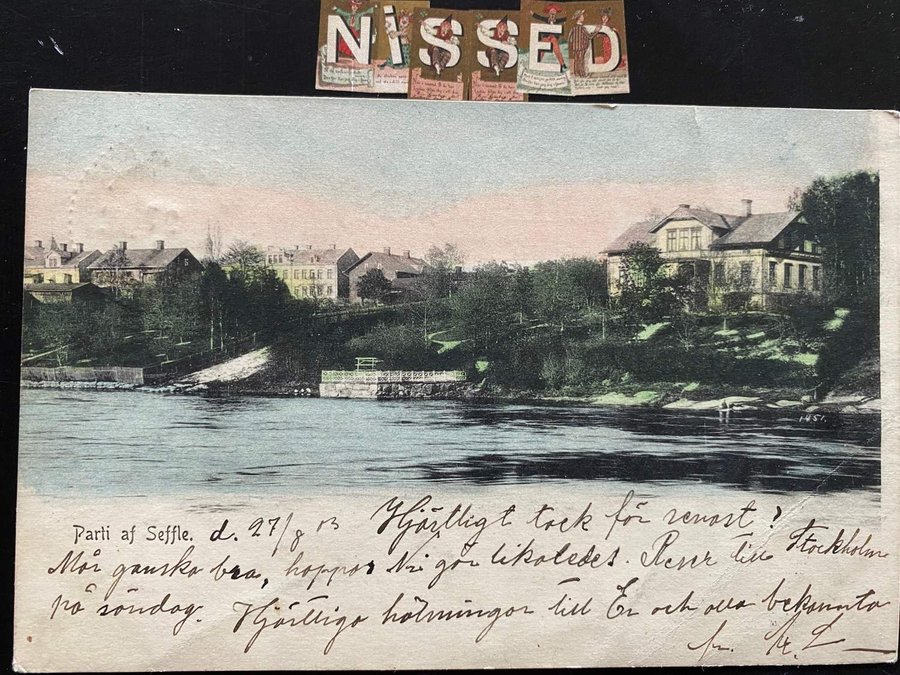 NiSSED
1451.
Parti af Seffle. d. 27/8 03 Hjärtligt tack för senast!
Mår ganska bra, hoppas Ni gör likaledes. Reser till Stockholm
på söndag. Hjärtliga hälsningar till Er och alla bekanta
fr.